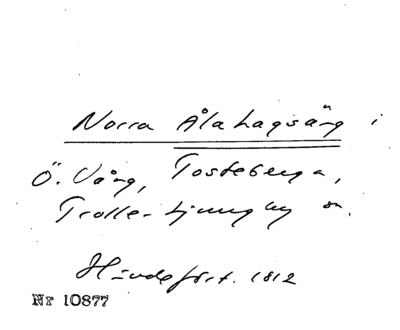 Norra Ålahagsäng i
Ö. Vång, Tosteberga,
Trolle-Ljungby sn.
Hindefört. 1812
Nr 10877